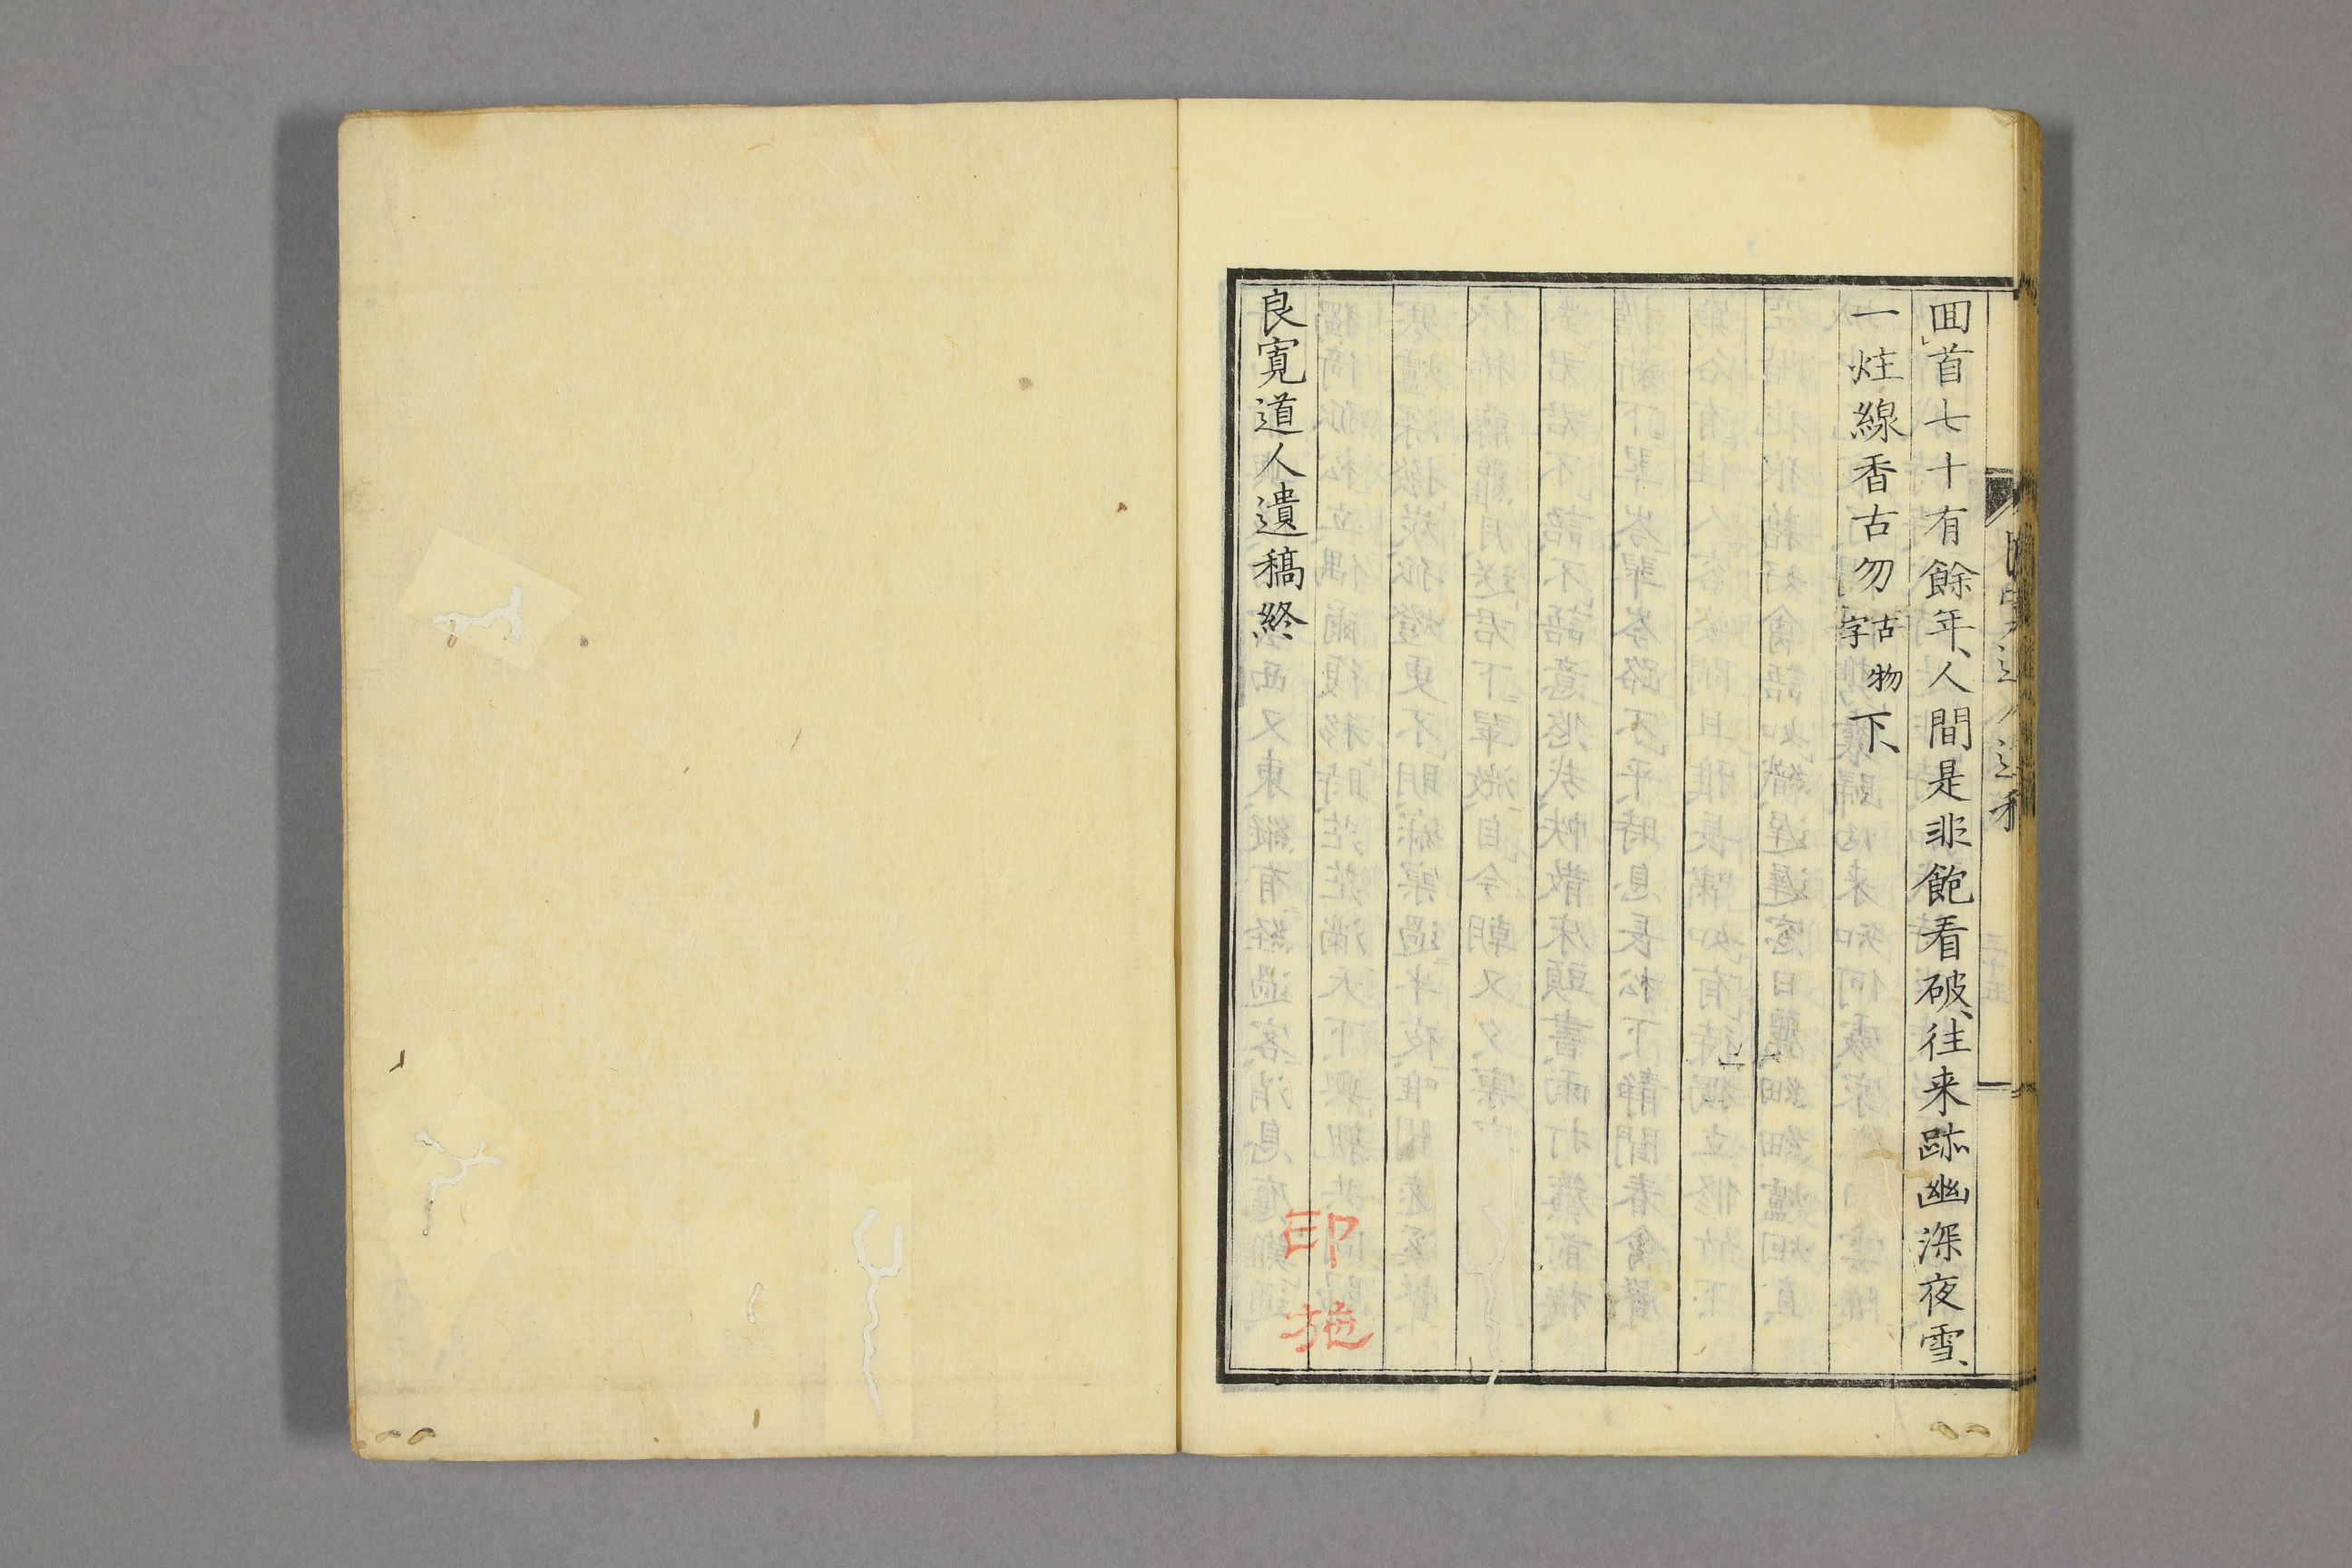 囬首七十有餘年、人間是非飽看破、往来跡幽深夜雪、
一炷線香古匆古物字下、
良寛道人遺稿終
印施